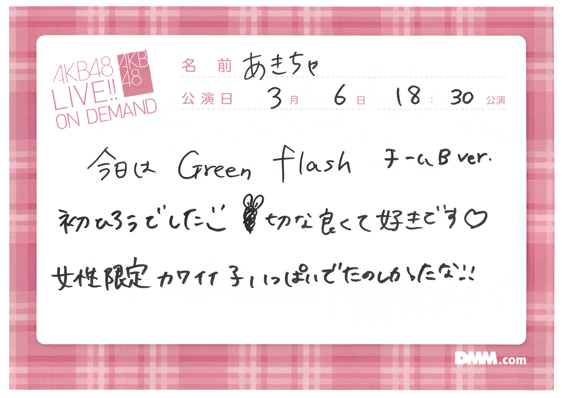 AKB48
LIVE!!
ON DEMAND
AKB
48
名 前 あきちゃ
公演日 3月 6日 18:30 公演
今日は Green flash チームB ver.
初ひろうでした
切な良くて好きです♡
女性限定カワイイ子いっぱいでたのしかったな!!
DMM.com